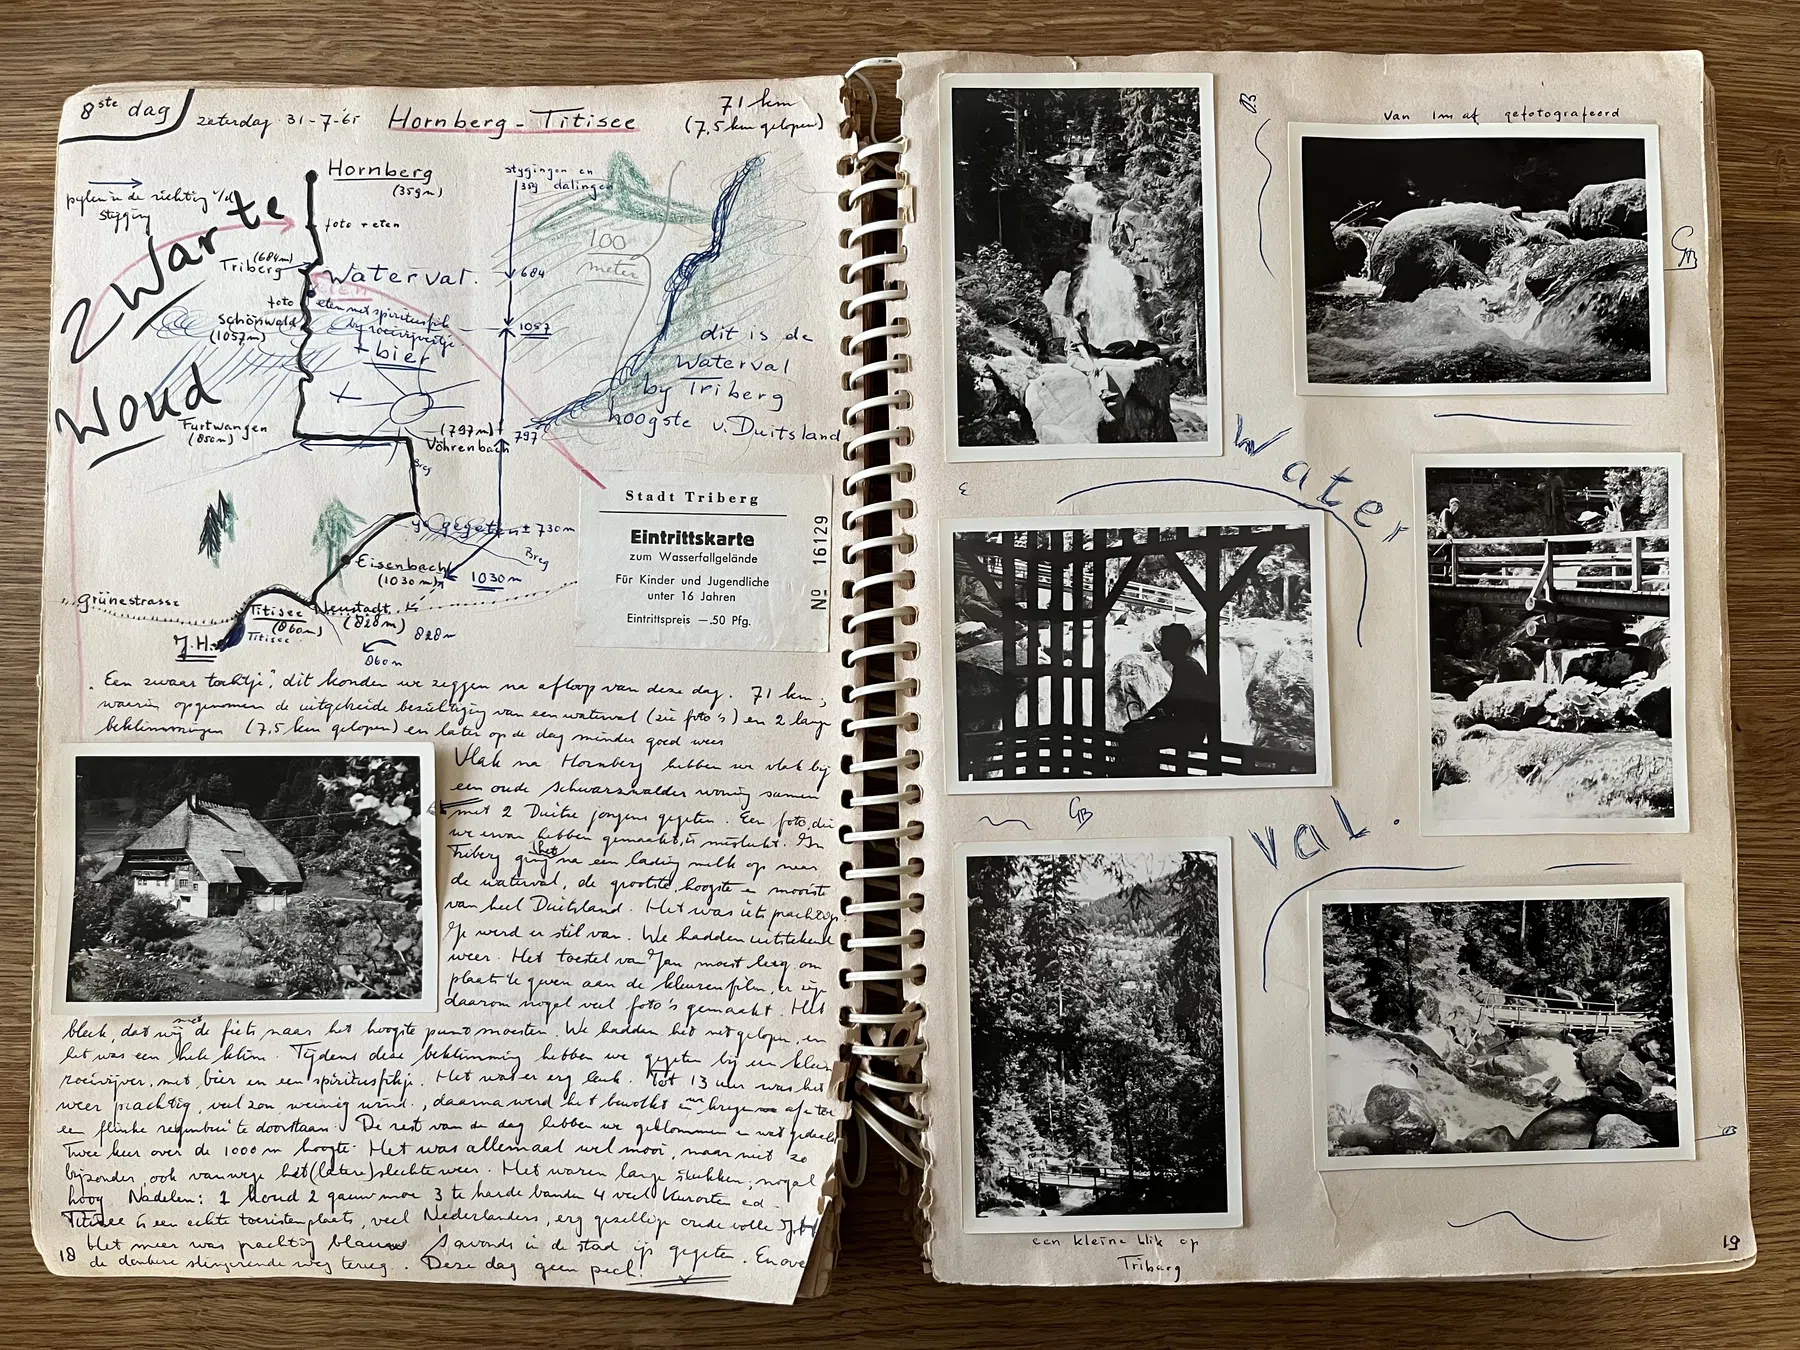 8ste dag
zaterdag 31-7-'65
Hornberg - Titisee
71 km
(7,5 km gelopen)
pijlen in de richting v/d
stijging
Zwarte
Woud
Hornberg
(359m)
foto + eten
(684m)
Triberg
Waterval.
foto
eten met spiritusfikkie
bij roeivijvertje
+ bier
Schönwald
(1057m)
Furtwangen
(850m)
(797m)
Vöhrenbach
Breg
ijs gegeten ± 730m
Breg
Eisenbach
(1030m)
Grünestrasse
Titisee
(860m)
Titisee
Neustadt
(828m)
J.H.
stijgingen en
359 dalingen
684
1057
797
1030m
828m
860m
100
meter
dit is de
waterval
by Triberg
hoogste v. Duitsland
Stadt Triberg
Eintrittskarte
zum Wasserfallgelände
Für Kinder und Jugendliche
unter 16 Jahren
Eintrittspreis —.50 Pfg.
No 16129
"Een zwaar tochtje", dit konden we zeggen na afloop van deze dag. 71 km;
waarin opgenomen de uitgebreide bezichtiging van een waterval (zie foto's) en 2 lange
beklimmingen (7,5 km gelopen) en later op de dag minder goed weer
Vlak na Hornberg hebben we vlak bij
een oude Schwarzwalder woning samen
met 2 Duitse jongens gegeten. Een foto, die
we ervan hebben gemaakt, is mislukt. In
Triberg ging het na een lading melk op naar
de waterval, de grootste, hoogste en mooiste
van heel Duitsland. Het was iets prachtigs.
Je werd er stil van. We hadden uitstekend
weer. Het toestel van Jan moest leeg om
plaats te geven aan de kleurenfilm, er zijn
daarom nogal veel foto's gemaakt. Het
bleek, dat wij met de fiets naar het hoogste punt moesten. We hadden het net gelopen, en
het was een hele klim. Tijdens deze beklimming hebben we gegeten bij een kleine
roeivijver, met bier en een spiritusfikje. Het was er erg leuk. Tot 13 uur was het
weer prachtig, veel zon weinig wind, daarna werd het bewolkt en kregen we af en toe
een flinke regenbui te doorstaan. De rest van de dag hebben we geklommen en wat gedaald
Twee keer over de 1000 m hoogte. Het was allemaal wel mooi, maar niet zo
bijzonder, ook vanwege het (latere) slechte weer. Het waren lange stukken, nogal
hoog. Nadelen: 1 koud 2 gauw moe 3 te harde banden 4 veel Kurorten ed.
Titisee is een echte toeristenplaats, veel Nederlanders, erg gezellige oude volle J.H.
Het meer was prachtig blauw 's avonds in de stad ijs gegeten. En over
de donkere slingerende weg terug. Deze dag geen pech!
18
van 1m af gefotografeerd
GB
Water
GB
val.
GB
een kleine blik op
Triberg
19